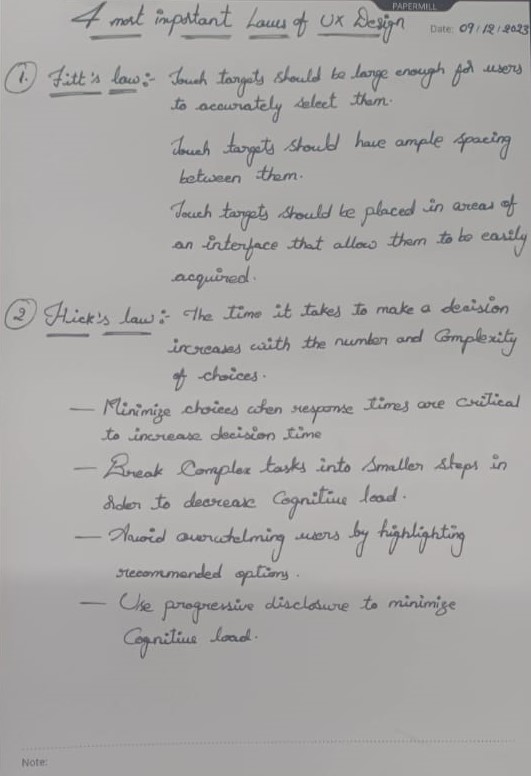 PAPERMILL
4 most important Laws of UX Design
Date: 09/12/2023
1. Fitt's law:- Touch targets should be large enough for users
to accurately select them.
Touch targets should have ample spacing
between them.
Touch targets should be placed in areas of
an interface that allow them to be easily
acquired.
2 Hick's law:- The time it takes to make a decision
increases with the number and Complexity
of choices.
— Minimize choices when response times are critical
to increase decision time
— Break Complex tasks into smaller steps in
order to decrease Cognitive load.
— Avoid overwhelming users by highlighting
recommended options.
— Use progressive disclosure to minimize
Cognitive load.
Note: